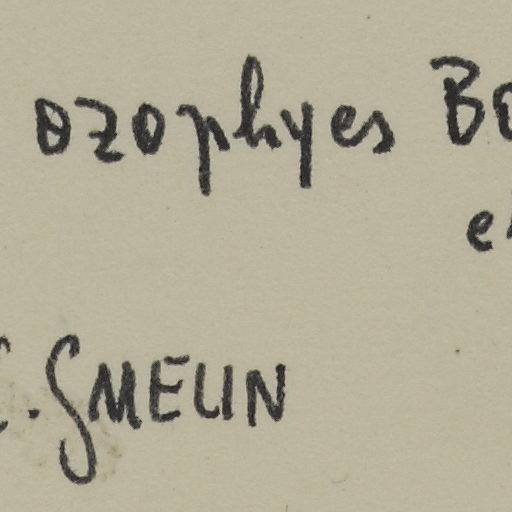 ozophyes Bo
e
. GMELIN